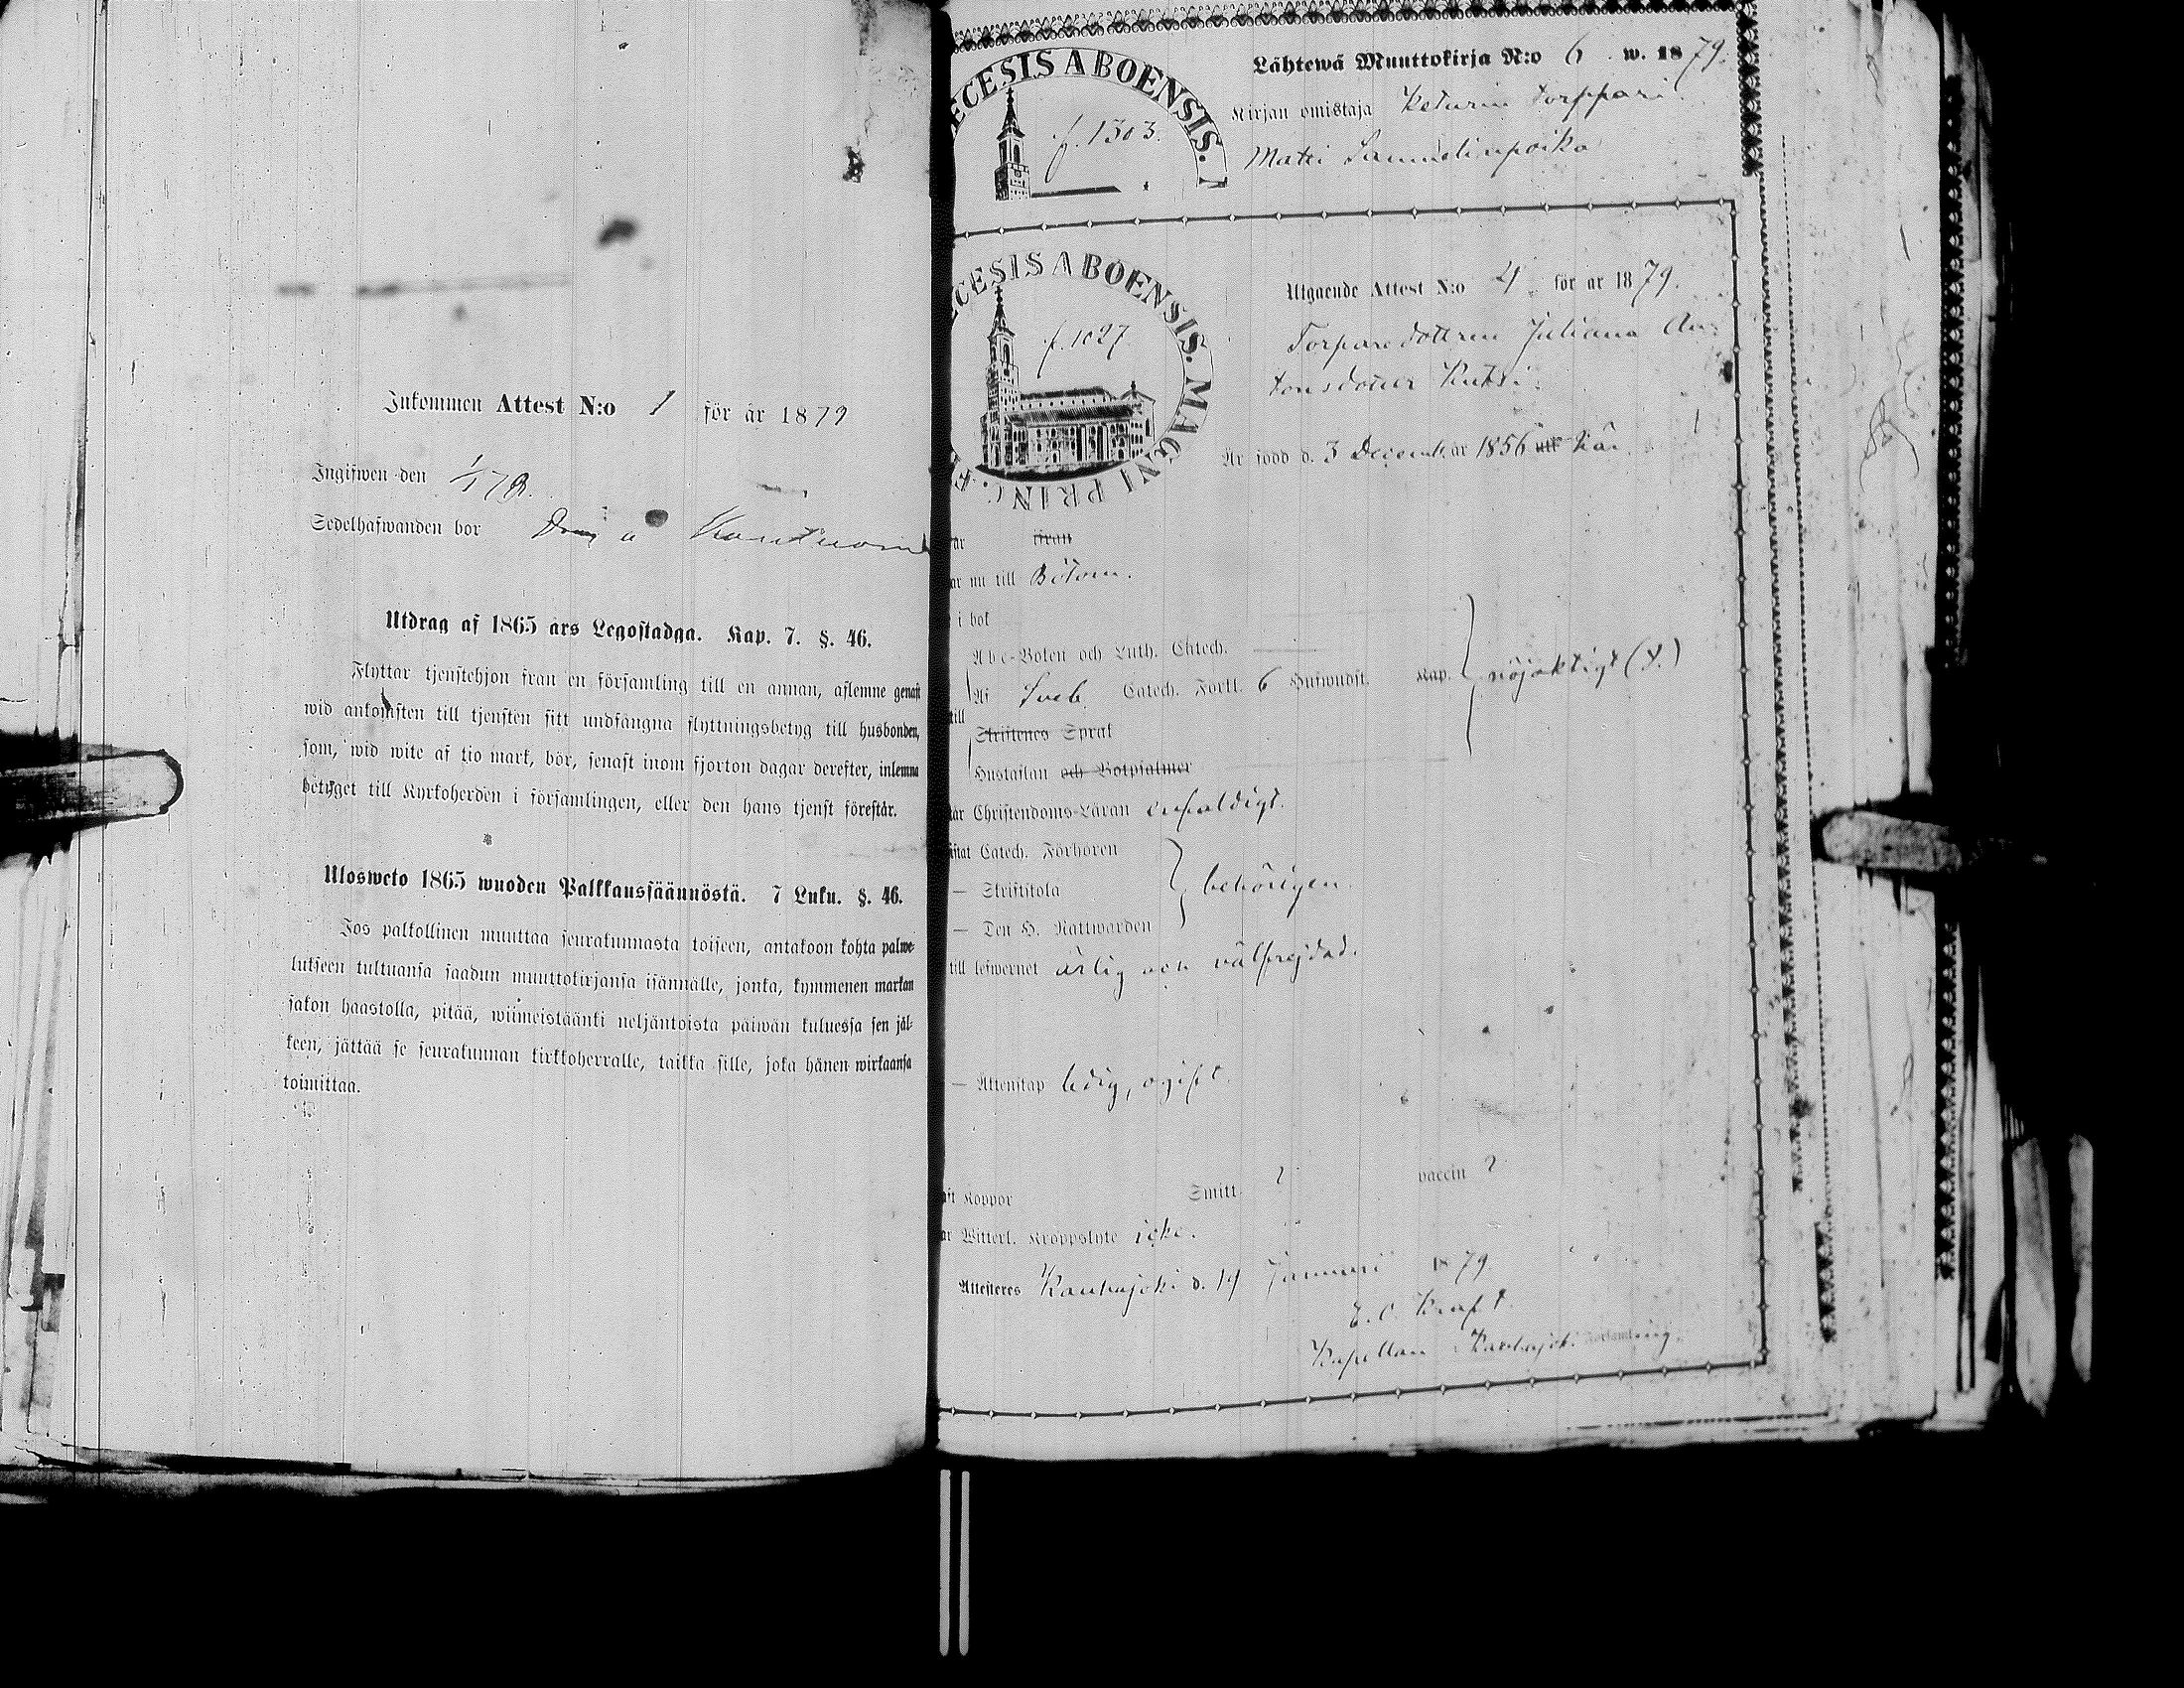 Inkommen Attest N:o 1 för år 1879
Ingifwen den 1/1 79.
Sedelhafwanden bor å
Utdrag af 1865 års Legostadga. Kap. 7. §. 46.
Flyttar tjenstehjon från en församling till en annan, aflemne genast
wid ankomsten till tjensten sitt undfångna flyttningsbetyg till husbonden,
som, wid wite af tio mark, bör, senast inom fjorton dagar derefter, inlemna
betyget till Kyrkoherden i församlingen, eller den hans tjenst förestår.
Ulosweto 1865 wuoden Palkkaussäännöstä. 7 Luku. §. 46.
Jos palkollinen muuttaa seurakunnasta toiseen, antakoon kohta palwe-
lukseen tultuansa saadun muuttokirjansa isännälle, jonka, kymmenen markan
sakon haastolla, pitää, wiimeistäänki neljäntoista päiwän kuluessa sen jäl-
keen, jättää se seurakunnan kirkkoherralle, taikka sille, joka hänen wirkaansa
toimittaa.
ECESIS ABOENSIS.
f. 1303.
Lähtewä Muuttokirja N:o 6. w. 1879.
Kirjan omistaja Keturin torppari
Matti Samuelinpoika
CESIS ABOENSIS. MAGNI PRINC. F
f. 1027
Utgående Attest N:o 4 för år 1879.
Torparedottren Juliana An-
tonsdotter Kutsi.
Är född d. 3 Decemb. år 1856 uti här.
år från
ar nu till Bötom.
i bok
Abc-Boken och Luth. Catech.
till
Af Sveb. Catech. Förkl. 6 Hufwudst. Kap. nöjaktigt (t.)
Skriftenes Språk
Hustaflan och Botpsalmer
tår Christendoms-Läran enfaldigt.
istat Catech. Förhören
— Skriftskola behörigen.
— Den H. Nattwarden
till lefwernet ärlig och välfrejdad.
— Äktenskap ledig, ogift.
aft Koppor Smitt. ? vaccin ?
ar Witterl. Kroppslyte icke.
Attesteres Kauhajoki d. 14 Januari 1879
E. C. Kraft.
Kapellan i Kauhajoki församling.